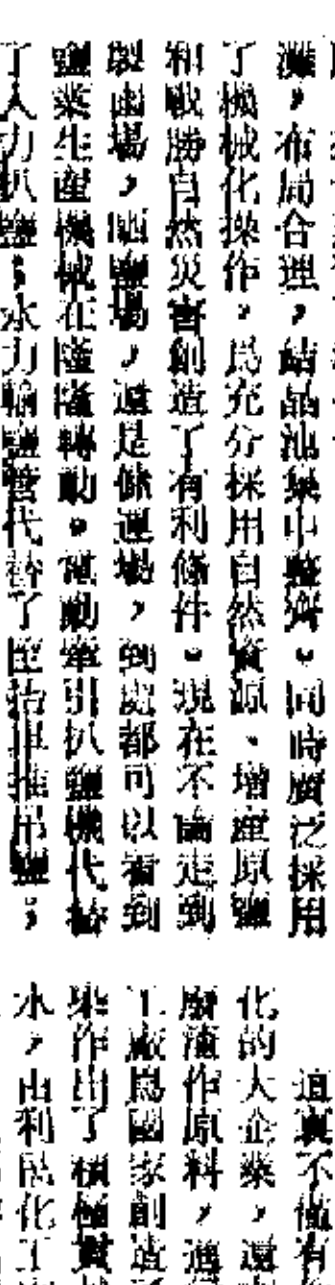 灘，布局合理，結晶池集中整齊。同時廣泛採用
了機械化操作，爲充分採用自然資源、增產原鹽
和戰勝自然災害創造了有利條件。現在不論走到
製鹵場，晒鹽場，還是儲運場，到處都可以看到
鹽業生產機械在隆隆轉動。電動牽引扒鹽機代替
了人力扒鹽；水力輸鹽管代替了推吊鹽；
這裏不僅有
化的大企業，還
廢渣作原料，進
工廠爲國家創造
作出了積極貢
水，由利民化工